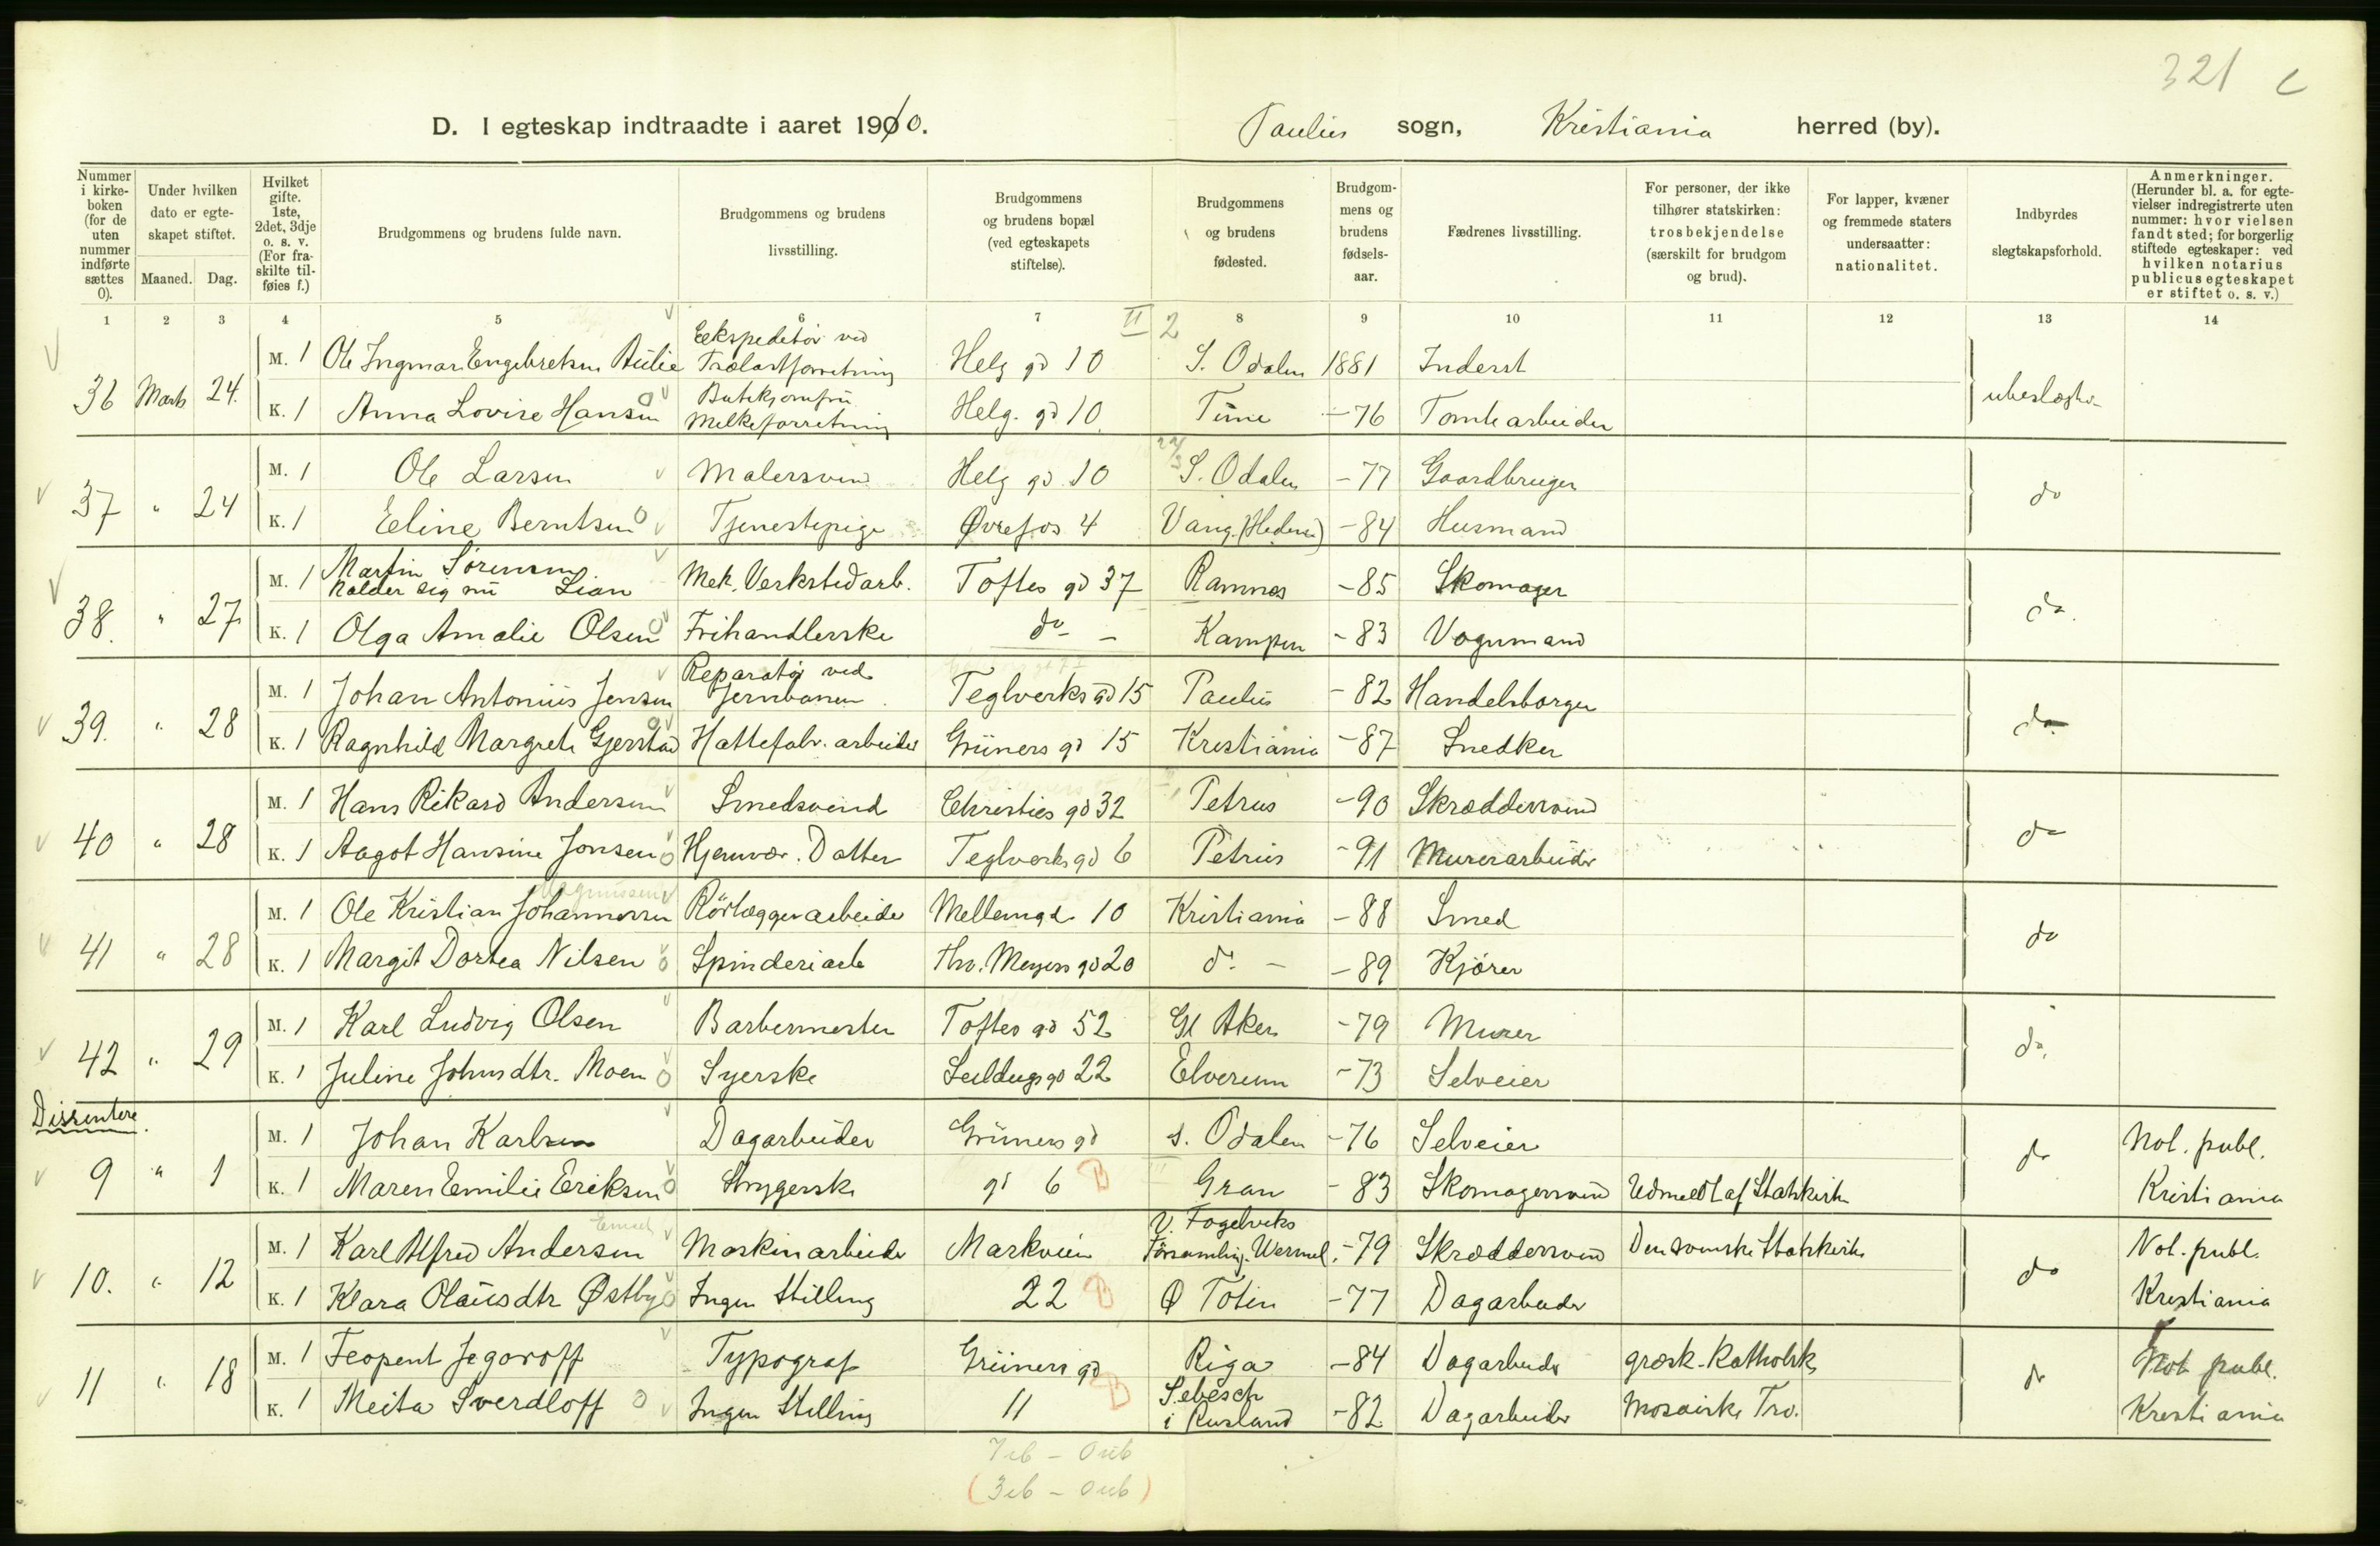 321 c
D. I egteskap indtraadte i aaret 1910. Paulus sogn, Kristiania herred (by).
Nummer i kirke-boken (for de uten nummer indførte sættes 0).
Under hvilken dato er egte-skapet stiftet.
Maaned. Dag.
Hvilket gifte. 1ste, 2det, 3dje o. s. v. (For fra-skilte til-føies f.)
Brudgommens og brudens fulde navn.
Brudgommens og brudens livsstilling.
Brudgommens og brudens bopæl (ved egteskapets stiftelse).
Brudgommens og brudens fødested.
Brudgom-mens og brudens fødsels-aar.
Fædrenes livsstilling.
For personer, der ikke tilhører statskirken: trosbekjendelse (særskilt for brudgom og brud).
For lapper, kvæner og fremmede staters undersaatter: nationalitet.
Indbyrdes slegtskapsforhold.
Anmerkninger. (Herunder bl. a. for egte-vielser indregistrerte uten nummer: hvor vielsen fandt sted; for borgerlig stiftede egteskaper: ved hvilken notarius publicus egteskapet er stiftet o. s. v.)
1 2 3 4 5 6 7 8 9 10 11 12 13 14
II 2
36 Marts 24. M. 1 Ole Ingmar Engebretsen Aulie Ekspeditør ved Trælastforretning Helg gd 10 S. Odalen 1881 Inderst ubeslægt.
K. 1 Anna Lovise Hansen Butikjomfru Melkeforretning Helg. gd 10 Time -76 Tomtearbeider
37 " 24 M. 1 Ole Larsen Malersvend Helg gd 10 S. Odalen -77 Gaardbruger do
K. 1 Eline Berntsen Tjenestepige Øvrefos 4 Vang (Hedem) -84 Husmand
38. " 27 M. 1 Martin Sørensen kalder sig nu Lian Mek. Verkstedarb. Toftes gd 37 Ramnes -85 Skomager do.
K. 1 Olga Amalie Olsen Frihandlerske do - Kampen -83 Vognmand
39. " 28 M. 1 Johan Antonius Jensen Reparatør ved Jernbanen Teglverks gd 15 Paulus -82 Handelsborger do
K. 1 Ragnhild Margrete Gjerstad Hattefabr. arbeider Grüners gd 15 Kristiania -87 Snedker
40 " 28 M. 1 Hans Rikard Andersen Smedsvend Christies gd 32 Petrus -90 Skræddersvend do
K. 1 Aagot Hansine Jonsen Hjemvær. Datter Teglverks gd 6 Petrus -91 Murerarbeider
Magnussen
41 " 28 M. 1 Ole Kristian Johannessen Rørlæggerarbeider Mellemgd. 10 Kristiania -88 Smed do
K. 1 Margit Dortea Nilsen Spinderiarb Thv. Meyers gd 20 do - -89 Kjører
42 " 29 M. 1 Karl Ludvig Olsen Barbermester Toftes gd 52 Gl Aker -79 Murer do.
K. 1 Juline Johnsdtr. Moen Syerske Seildugs gd 22 Elverum -73 Selveier
Dissentere.
9 " 1 M. 1 Johan Karlsen Dagarbeider Grüners gd S. Odalen -76 Selveier do Not. publ.
K. 1 Maren Emilie Eriksen Strygerske gd 6 Gran -83 Skomagersvend Udmeldt af Statskirken Kristiania
10. " 12 M. 1 Karl Alfred Andersen Maskinarbeider Markveien V. Fogelviks Församling. Wermel. -79 Skræddersvend Den svenske Statskirke do Not. publ.
K. 1 Klara Olausdtr Østby Ingen Stilling 22 Ø Toten -77 Dagarbeider Kristiania
11 " 18 M. 1 Feopent Jegoroff Typograf Grüners gd Riga -84 Dagarbeider græsk-katholsk do Not publ.
K. 1 Meita Sverdloff Ingen Stilling 11 Sebesch i Rusland -82 Dagarbeider Mosaiske Tro. Kristiania
7 ib - 0 ub
(3 ib - 0 ub)